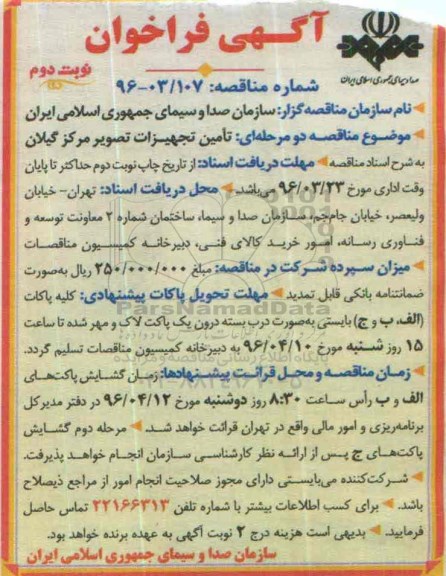 آگهی فراخوان
صدا و سیمای جمهوری اسلامی ایران
نوبت دوم
شماره مناقصه: ۹۶-۰۳/۱۰۷
نام سازمان مناقصه‌گزار: سازمان صدا و سیمای جمهوری اسلامی ایران
موضوع مناقصه دو مرحله‌ای: تأمین تجهیزات تصویر مرکز گیلان
به شرح اسناد مناقصه مهلت دریافت اسناد: از تاریخ چاپ نوبت دوم حداکثر تا پایان
وقت اداری مورخ ۹۶/۰۳/۲۳ می‌باشد. محل دریافت اسناد: تهران- خیابان
ولیعصر، خیابان جام‌جم، سازمان صدا و سیما، ساختمان شماره ۲ معاونت توسعه و
فناوری رسانه، امور خرید کالای فنی، دبیرخانه کمیسیون مناقصات
میزان سپرده شرکت در مناقصه: مبلغ ۲۵۰/۰۰۰/۰۰۰ ریال به‌صورت
ضمانتنامه بانکی قابل تمدید مهلت تحویل پاکات پیشنهادی: کلیه پاکات
ParsNamadData
(الف، ب و ج) بایستی به‌صورت درب بسته درون یک پاکت لاک و مهر شده تا ساعت
۱۵ روز شنبه مورخ ۹۶/۰۴/۱۰ به دبیرخانه کمیسیون مناقصات تسلیم گردد.
زمان مناقصه و محل قرائت پیشنهادها: زمان گشایش پاکت‌های
الف و ب رأس ساعت ۸:۳۰ روز دوشنبه مورخ ۹۶/۰۴/۱۲ در دفتر مدیرکل
برنامه‌ریزی و امور مالی واقع در تهران قرائت خواهد شد. مرحله دوم گشایش
پاکت‌های ج پس از ارائه نظر کارشناسی سازمان انجام خواهد پذیرفت.
شرکت‌کننده می‌بایستی دارای مجوز صلاحیت انجام امور از مراجع ذیصلاح
باشد. برای کسب اطلاعات بیشتر با شماره تلفن ۲۲۱۶۶۳۱۳ تماس حاصل
فرمایید. بدیهی است هزینه درج ۲ نوبت آگهی به عهده برنده خواهد بود.
سازمان صدا و سیمای جمهوری اسلامی ایران